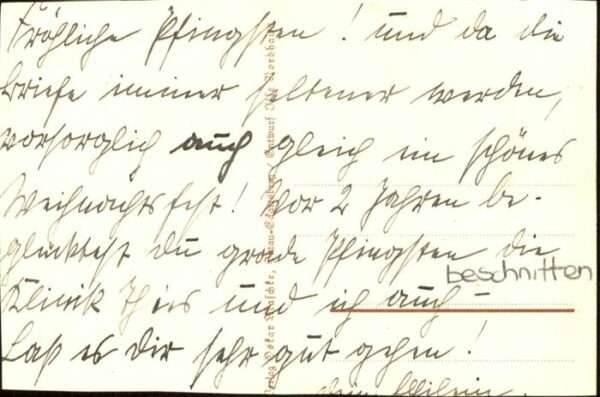 Fröhliche Pfingsten! und da die
Briefe immer seltener werden,
vorsorglich auch gleich ein schönes
Weihnachtsfest! Vor 2 Jahren be-
glücktest du grade Pfingsten die
beschnitten
Klinik und ich auch –
Laß es Dir sehr gut gehen!
Verlag Oskar
Entwurf